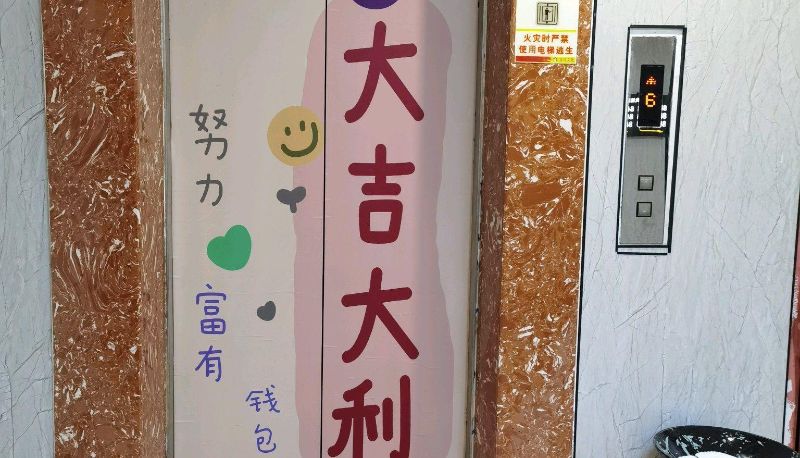 大吉大利
努力
富有
钱包
火灾时严禁
使用电梯逃生
6